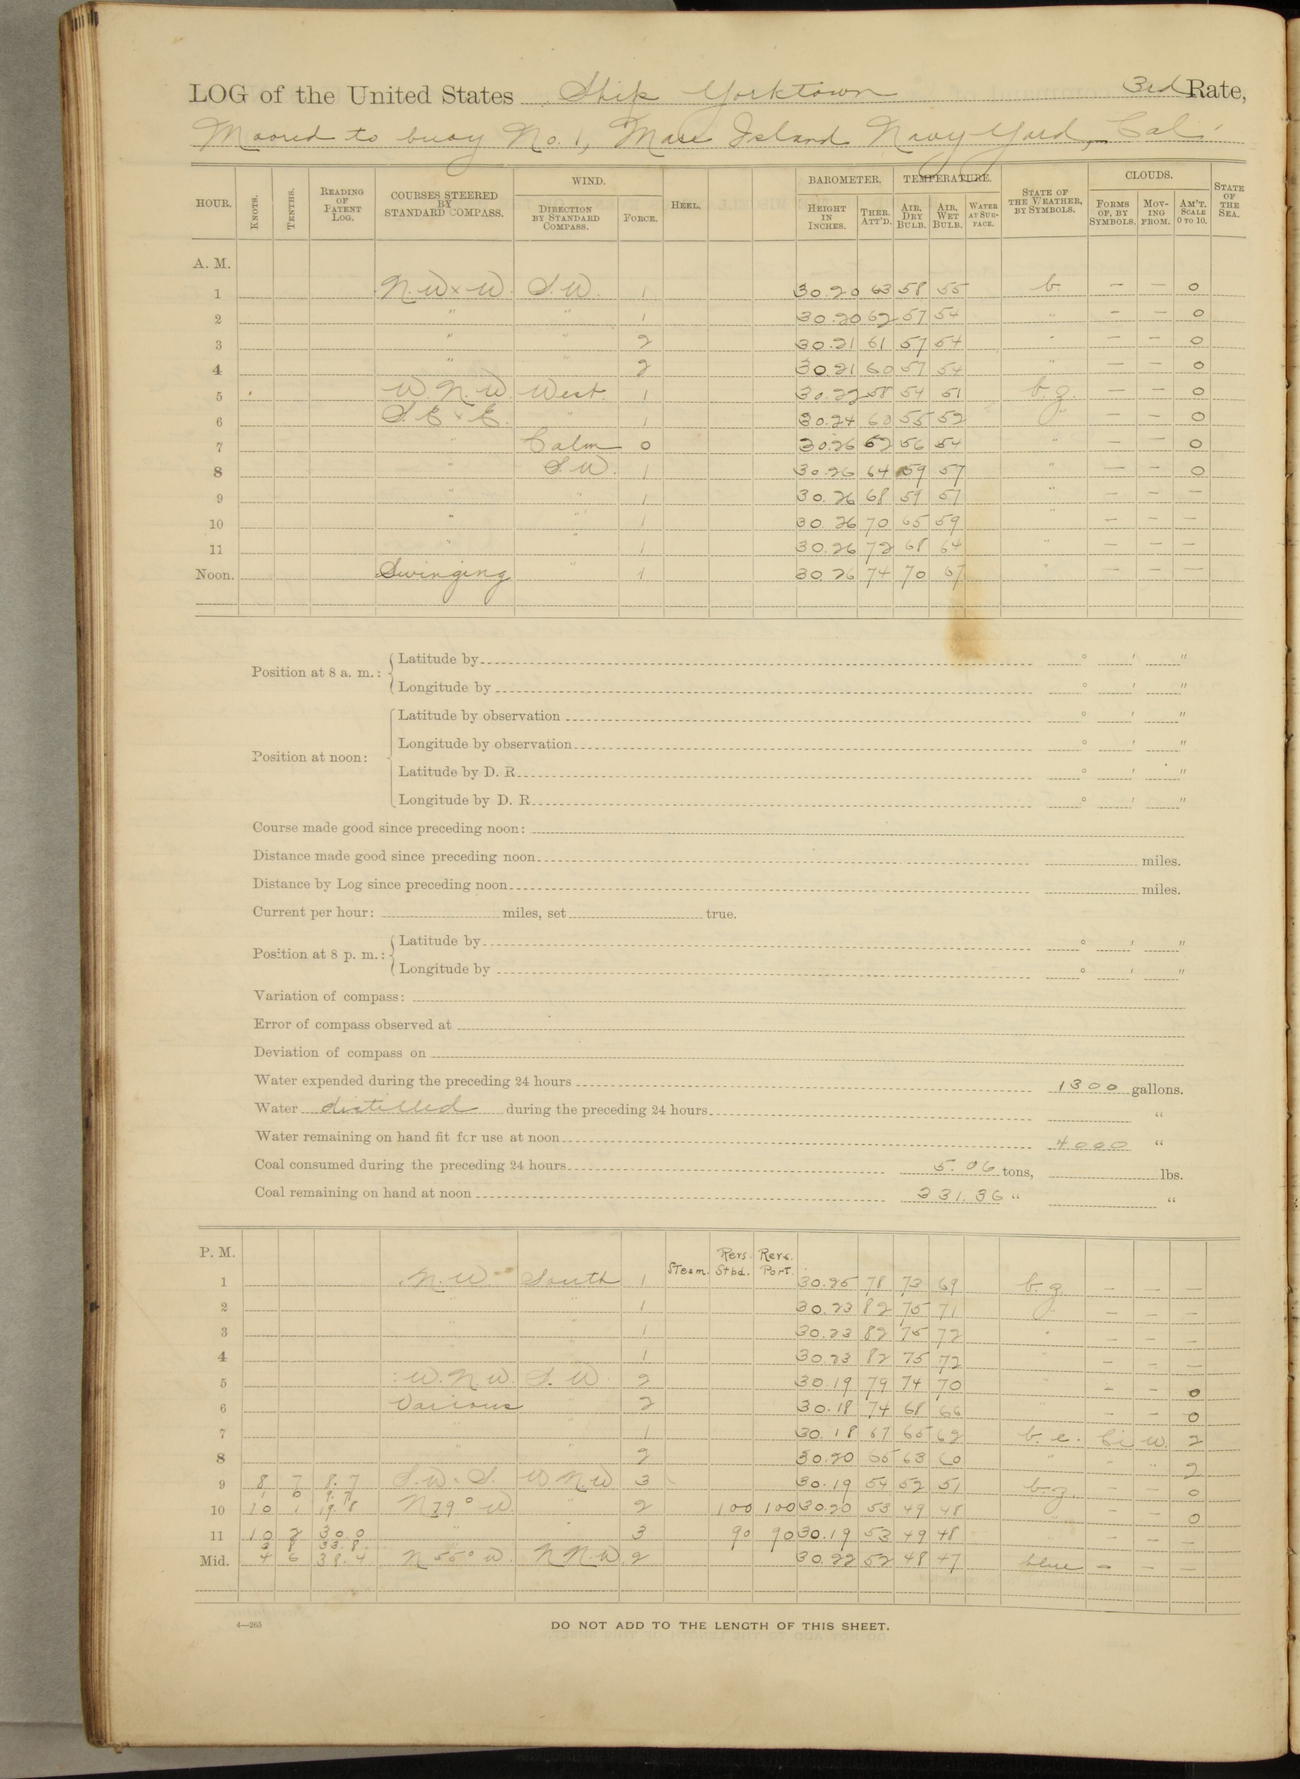 LOG of the United States Ship Yorktown 3rd Rate,
Moored to buoy No. 1, Mare Island Navy Yard, Cal.
HOUR. KNOTS. TENTHS. READING OF PATENT LOG. COURSES STEERED BY STANDARD COMPASS. WIND. DIRECTION BY STANDARD COMPASS. FORCE. HEEL. BAROMETER. HEIGHT IN INCHES. THER. ATT'D. TEMPERATURE. AIR, DRY BULB. AIR, WET BULB. WATER AT SURFACE. STATE OF THE WEATHER, BY SYMBOLS. CLOUDS. FORMS OF, BY SYMBOLS. MOVING FROM. AM'T. SCALE 0 TO 10. STATE OF THE SEA.
A. M.
1 N.W x W. S.W. 1 30.20 63 58 55 b. — — 0
2 " " 1 30.20 62 57 54 " — — 0
3 " " 2 30.21 61 57 54 " — — 0
4 " " 2 30.21 60 57 54 " — — 0
5 W.N.W. West. 1 30.22 58 54 51 b.z. — — 0
6 S.E x E. " 1 30.24 60 55 52 " — — 0
7 " Calm 0 30.26 62 56 54 " — — 0
8 " S.W. 1 30.26 64 59 57 " — — 0
9 " " 1 30.26 68 59 57 " — — —
10 " " 1 30.26 70 65 59 " — — —
11 " " 1 30.26 72 68 64 " — — —
Noon. Swinging " 1 30.26 74 70 67 " — — —
Position at 8 a. m.: Latitude by ° ' "
Longitude by ° ' "
Position at noon: Latitude by observation ° ' "
Longitude by observation ° ' "
Latitude by D. R. ° ' "
Longitude by D. R. ° ' "
Course made good since preceding noon:
Distance made good since preceding noon miles.
Distance by Log since preceding noon miles.
Current per hour: miles, set true.
Position at 8 p. m.: Latitude by ° ' "
Longitude by ° ' "
Variation of compass:
Error of compass observed at
Deviation of compass on
Water expended during the preceding 24 hours 1300 gallons.
Water distilled during the preceding 24 hours "
Water remaining on hand fit for use at noon 4000 "
Coal consumed during the preceding 24 hours 5.06 tons, lbs.
Coal remaining on hand at noon 331.36 " "
P. M. Steam. Revs. Stbd. Revs. Port.
1 N.W. South 1 30.25 78 73 69 b.z. — — —
2 " " 1 30.23 82 75 71 " — — —
3 " " 1 30.23 82 75 72 " — — —
4 " " 1 30.23 82 75 72 " — — —
5 W.N.W. S.W. 2 30.19 79 74 70 " — — 0
6 Various " 2 30.18 74 68 66 " — — 0
7 " " 1 30.18 67 65 62 b.c. Ci W. 2
8 " " 2 30.20 65 63 60 " " " 2
9 8 7 8.7 S.W. S. W N.W 3 30.19 54 52 51 b.z. — — 0
10 10 1 19.8 N 79° W. " 2 100 100 30.20 53 49 48 " — — 0
11 10 2 30.0 " " 3 90 90 30.19 53 49 48 " — — —
3 8 33.8
Mid. 4 6 38.4 N 55° W. N.N.W. 2 30.22 52 48 47 blue — — —
4—265
DO NOT ADD TO THE LENGTH OF THIS SHEET.